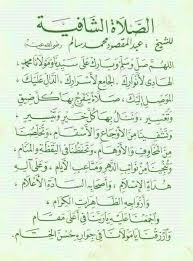 الصلاة الشافية
للشيخ / عبد المقصود محمد سالم رضي الله عنه
اللهم صل وسلم وبارك على سيدنا ومولانا محمد
الهادي لأنوارك، الجامع لأسرارك، الدال عليك،
الموصل إليك، صلاة تفرج بها كل ضيق
وتعسير، وننال بها كل خير وتيسير،
وتشفينا من الأوجاع والأسقام، وتخلصنا
من المخاوف والأوهام، وتحفظنا في اليقظة والمنام،
وتنجينا من نوائب الدهر ومتاعب الأيام، وعلى آله
هداة الإسلام، وأصحابه السادة الأعلام،
وأزواجه الطاهرات الكرام،
واجمعنا عليه يا ربنا في أعلى مقام
وارزقنا يا مولانا في جواره حسن الختام.